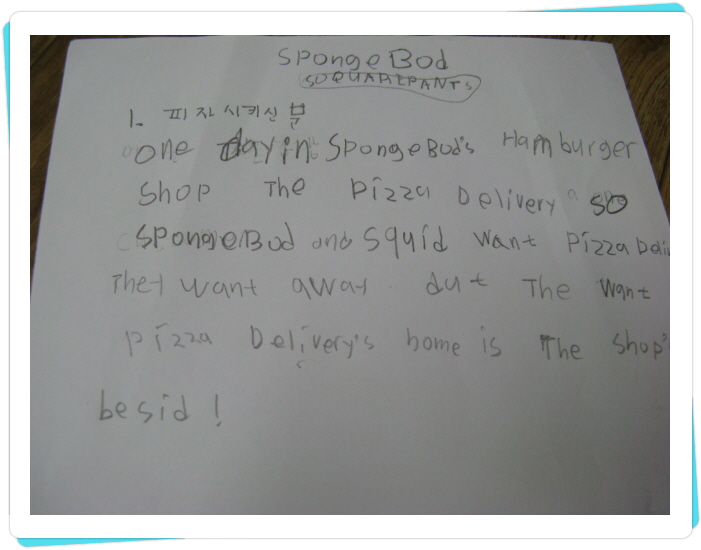 SPongeBod
SQUAREPANTS
1. 피자 시키신 분
one day in SPongeBod's Hamburger
Shop The Pizza Delivery so
SPongeBod and Squid want Pizza Deli
They want away dut The want
pizza Delivery's home is The shop'
besid!